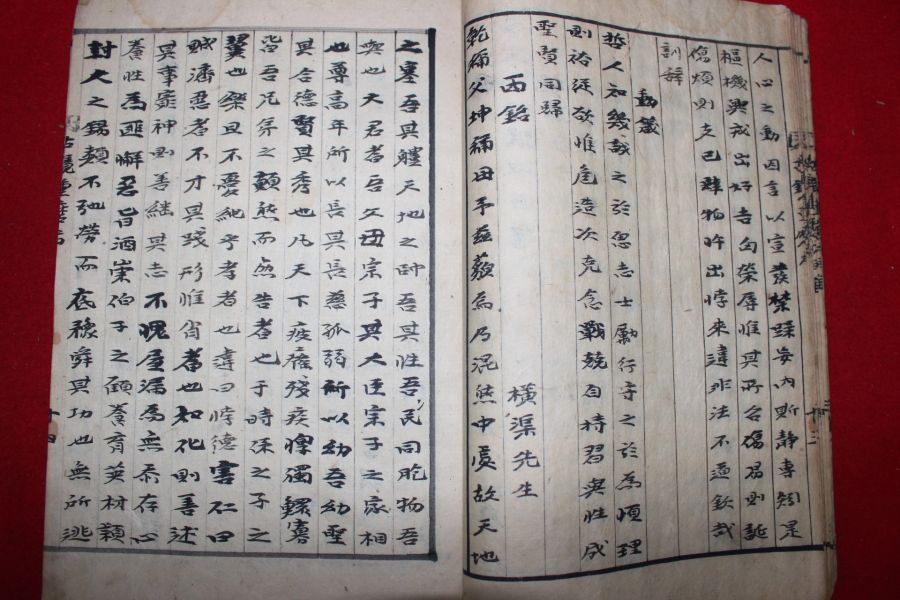 人心之動因言以宣發禁躁妄內斯靜專矧是
樞機興戎出好吉凶榮辱惟其所召傷易則誕
傷煩則支己肆物忤出悖來違非法不道欽哉
訓辭
動箴
哲人知幾誠之於思志士勵行守之於為順理
則裕從欲惟危造次克念戰兢自持習與性成
聖賢同歸
西銘 橫渠先生
乾稱父坤稱母予茲藐焉乃混然中處故天地
之塞吾其體天地之帥吾其性吾民同胞物吾
與也大君者吾父母宗子其大臣宗子之家相
也尊高年所以長其長慈孤弱所以幼吾幼聖
其合德賢其秀也凡天下疲癃殘疾惸獨鰥寡
皆吾兄弟之顛連而無告者也于時保之子之
翼也樂且不憂純乎孝者也違曰悖德害仁曰
賊濟惡者不才其踐形惟肖者也知化則善述
其事窮神則善繼其志不愧屋漏為無忝存心
養性為匪懈惡旨酒崇伯子之顧養育英材穎
封人之錫類不弛勞而底豫舜其功也無所逃
十四